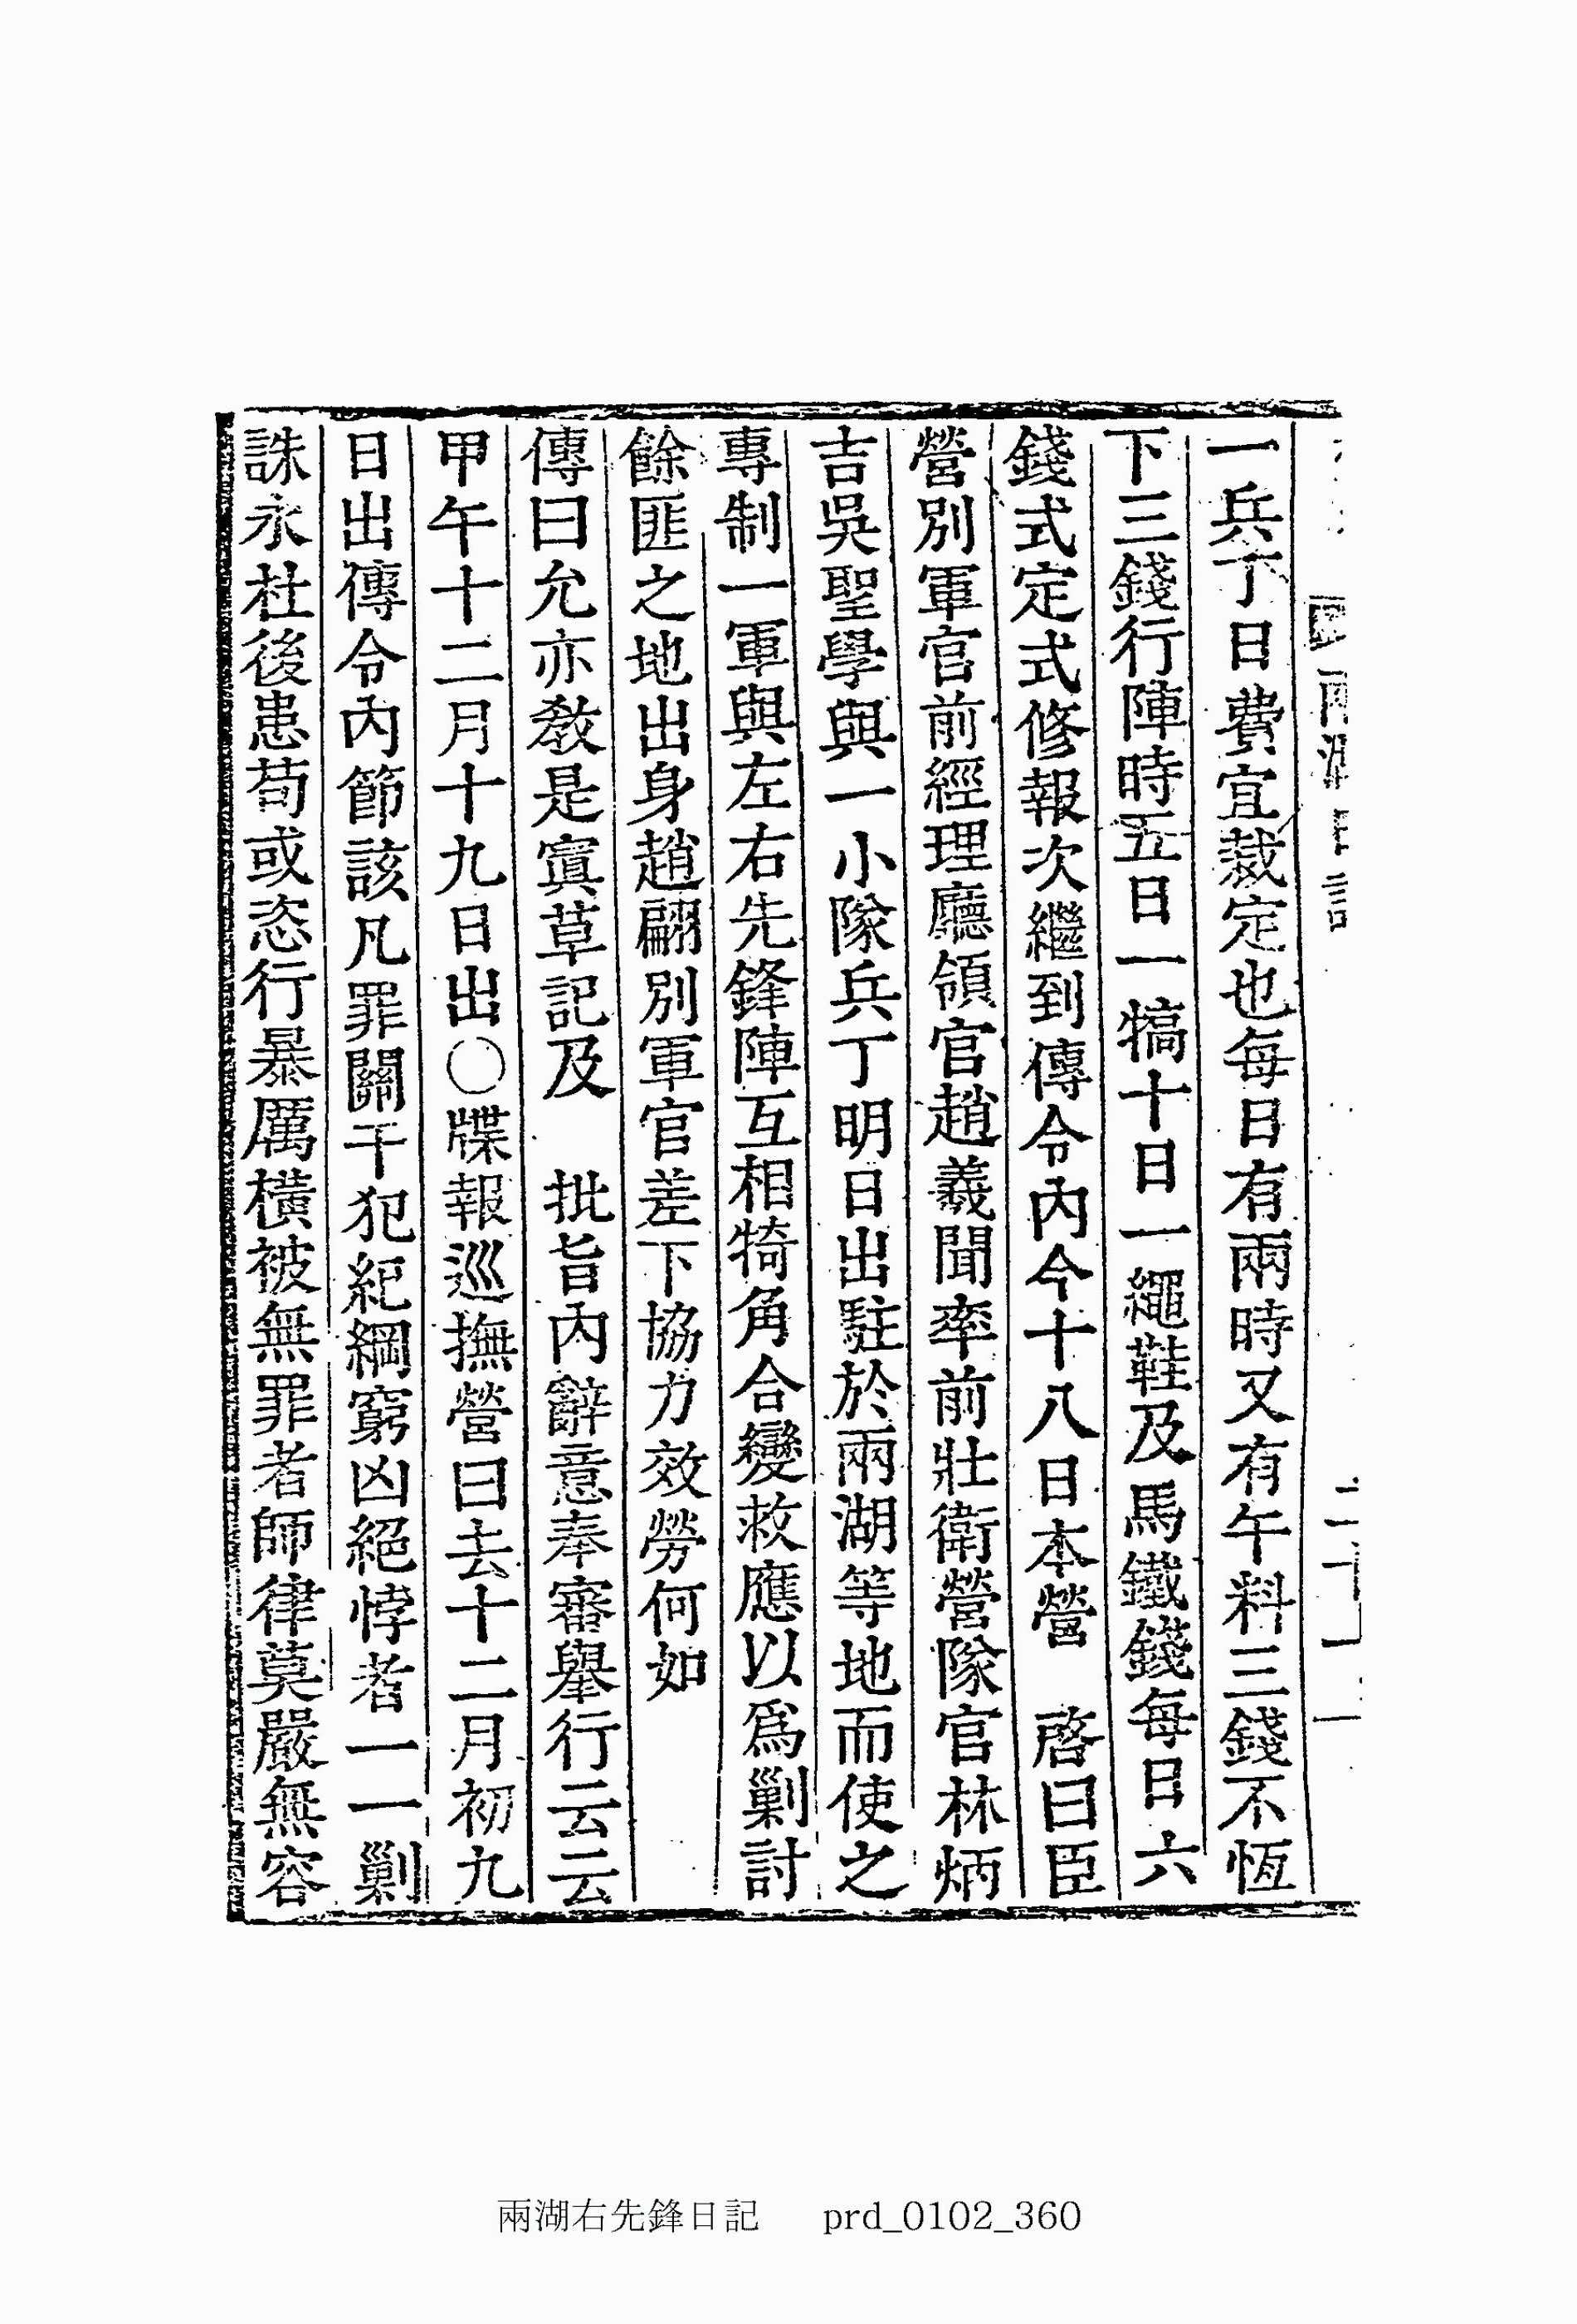 一兵丁日費宜裁定也每日有兩時又有午料三錢不恆
下三錢行陣時五日一犒十日一繩鞋及馬鐵錢每日六
錢式定式修報次繼到傳令內今十八日本營　啓曰臣
營別軍官前經理廳領官趙羲聞率前壯衛營隊官林炳
吉吳聖學與一小隊兵丁明日出駐於兩湖等地而使之
專制一軍與左右先鋒陣互相犄角合變救應以爲剿討
餘匪之地出身趙翩別軍官差下協力效勞何如
傳曰允亦敎是寘草記及　批旨內辭意奉審擧行云云
甲午十二月十九日出○牒報巡撫營曰去十二月初九
日出傳令內節該凡罪關干犯紀綱窮凶絕悖者一一剿
誅永杜後患苟或恣行暴厲橫被無罪者師律莫嚴無容
兩湖右先鋒日記　prd_0102_360